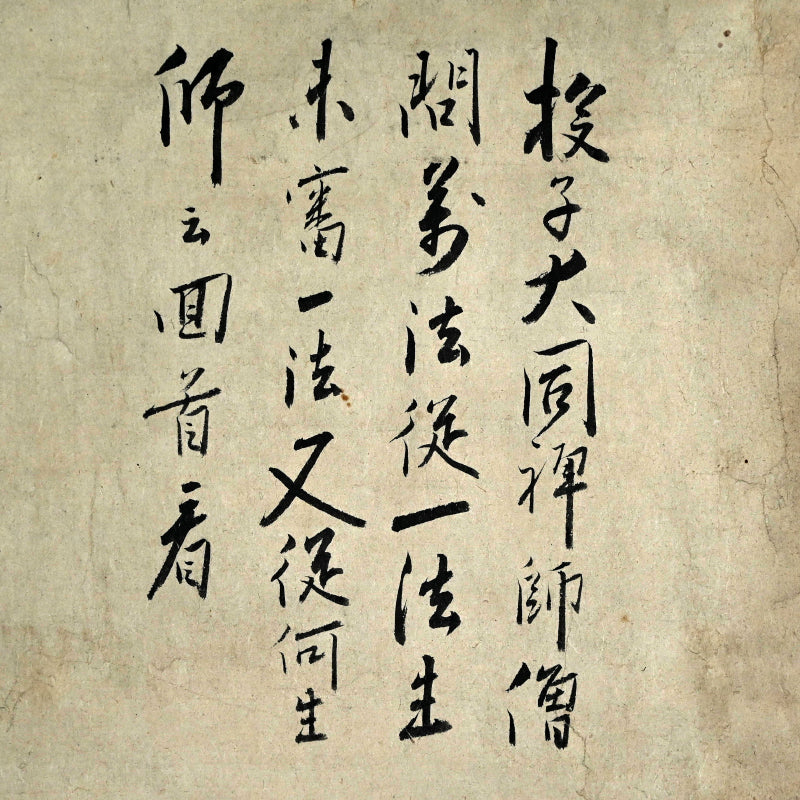 投子大同禪師僧
問萬法從一法生
未審一法又從何生
師云回首看